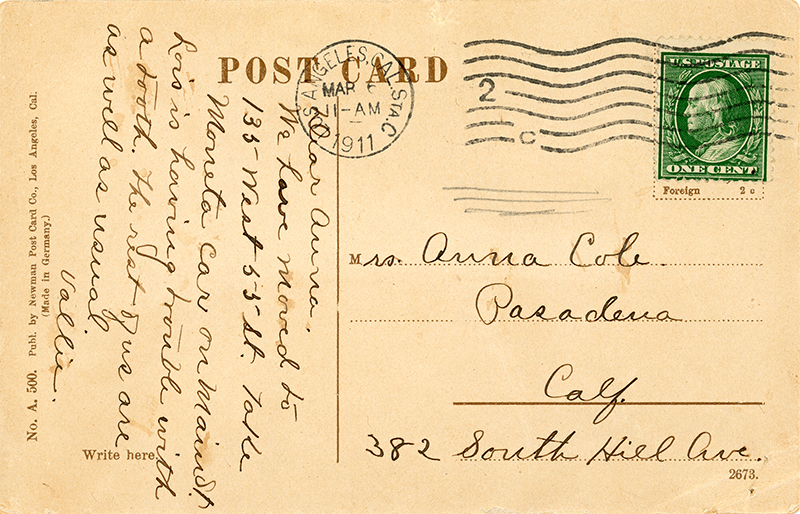 POST CARD
LOS ANGELES, CAL. STA. C
MAR 6
11-AM
1911
2
C
U.S. POSTAGE
ONE CENT
Foreign 2 c
Dear Anna.
We have moved to
135 West 55 St. take
Moneta Car on Main St.
Lois is having trouble with
a tooth. The rest of us are
as well as usual.
Vallie.
Mrs. Anna Cole.
Pasadena
Calf.
382 South Hill Ave.
Write here.
2673.
No. A. 500. Publ. by Newman Post Card Co., Los Angeles, Cal.
(Made in Germany.)